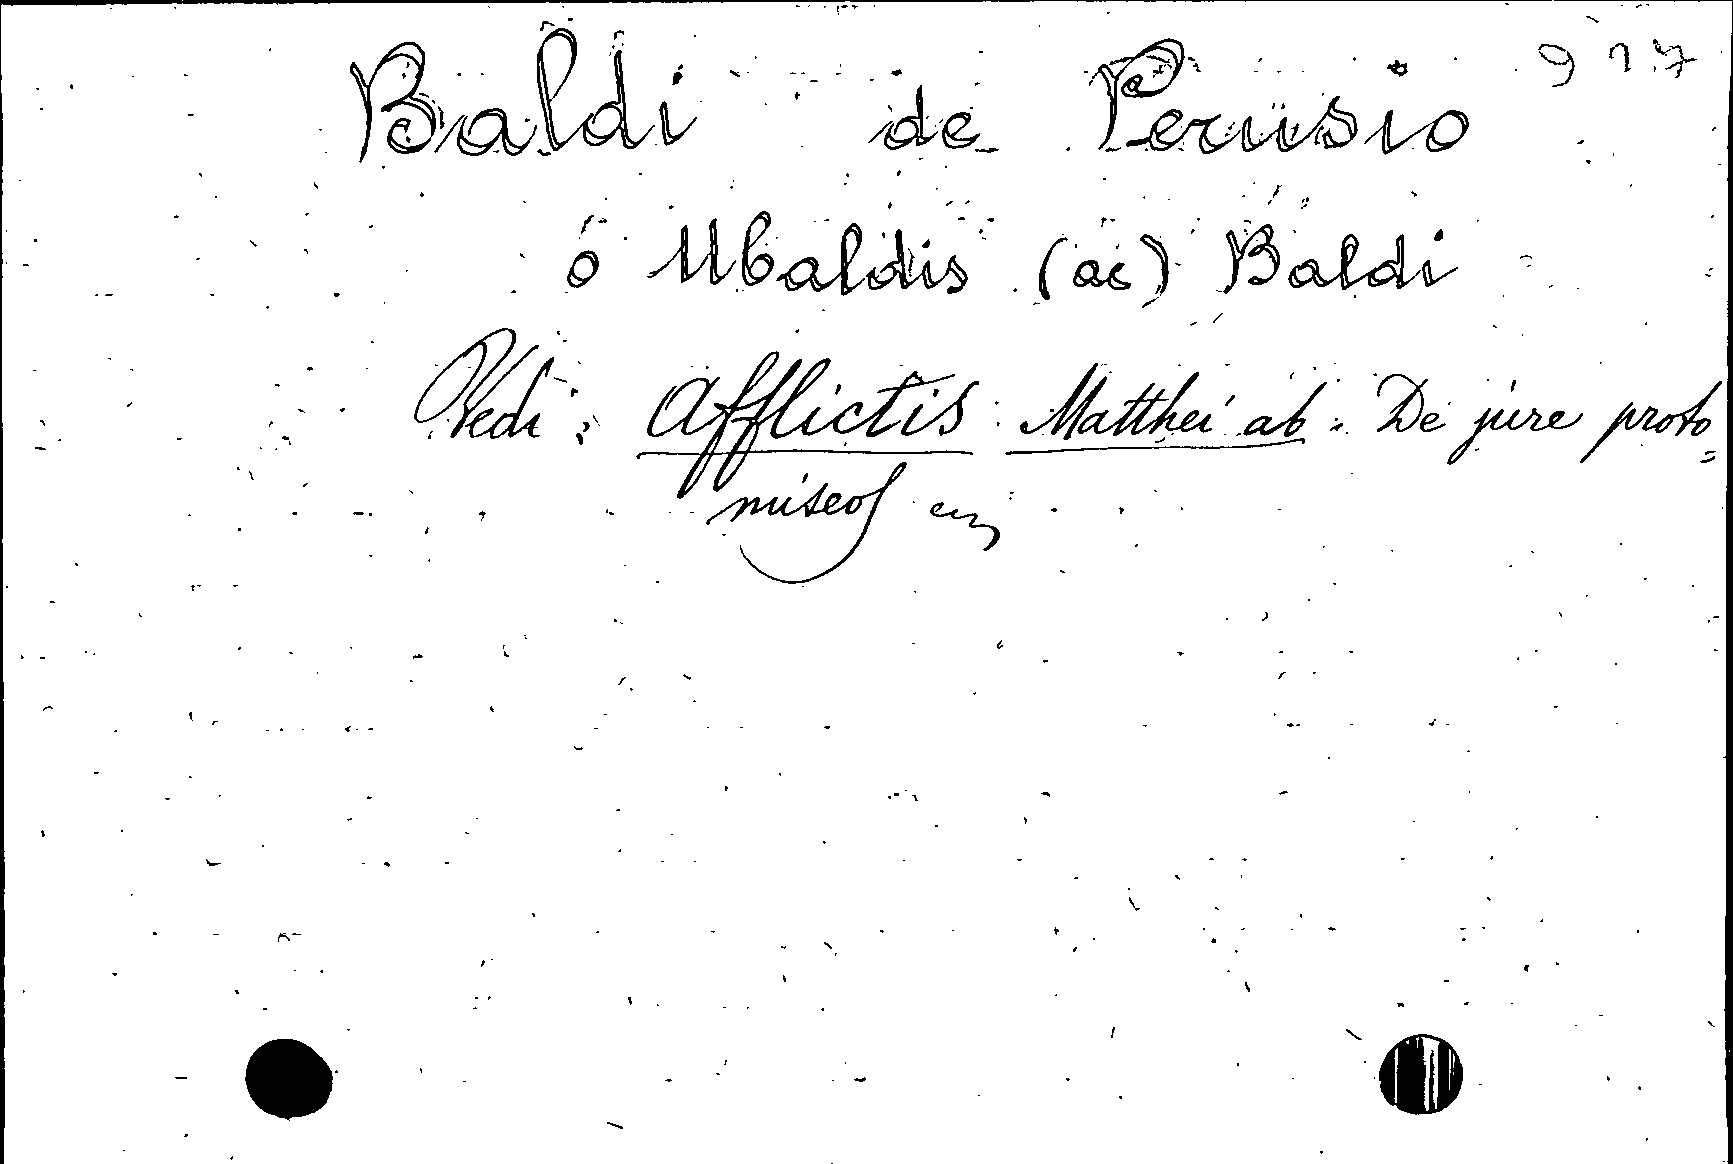 917
Baldi de Perusio
o Ubaldis (de) Baldi
Vedi: Afflictis Matthei ab. De jure proto=
miseos